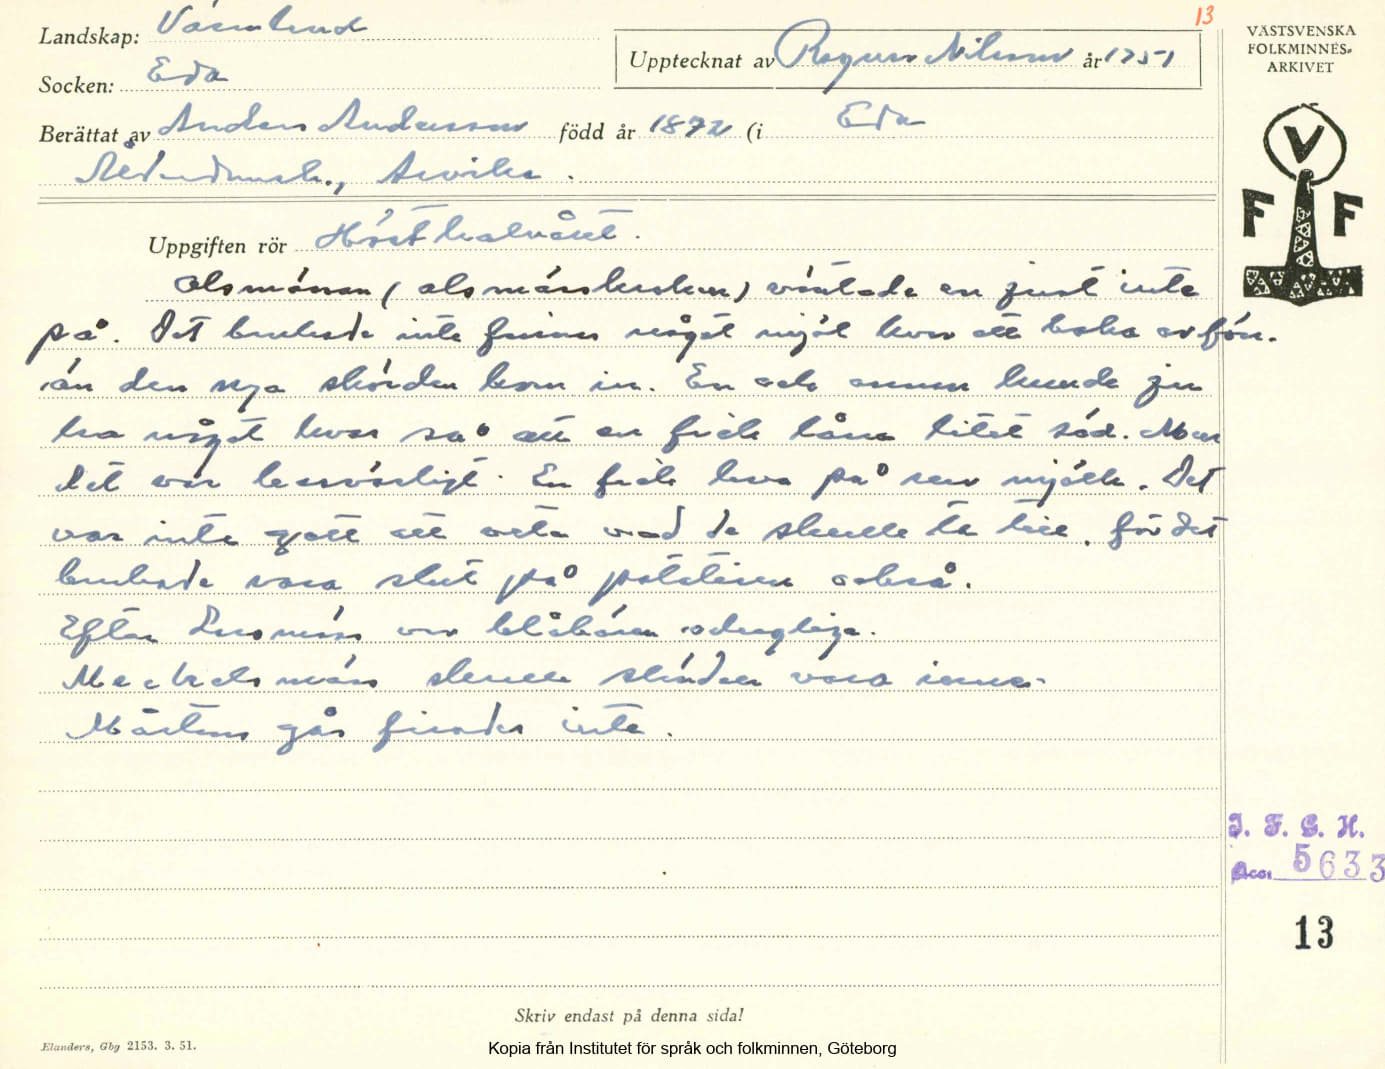 13
Landskap: Värmland
Upptecknat av Ragnar Nilsson år 1951
Socken: Eda
Berättat av Anders Andersson född år 1872 (i Eda
Arvika.
Uppgiften rör Hösthalvåret.
olsmässan (olsmässbrasken) väntade en just inte
på. Det brukade inte finnas något mjöl kvar att baka av för-
rän den nya skörden kom in. En och annan kunde ju
ha något kvar så att en fick låna litet säd. Men
det var besvärligt. En fick leva på ren mjölk. Det
var inte gott att veta vad de skulle ta till, för det
brukade vara slut på potatisen också.
Efter Larsmäss var blåbären odugliga.
Mickelsmäss skulle skörden vara inne.
Mårtens gås firades inte.
Skriv endast på denna sida!
Elanders, Gbg 2153. 3. 51.
Kopia från Institutet för språk och folkminnen, Göteborg
VÄSTSVENSKA
FOLKMINNES-
ARKIVET
V
F F
I. F. G. H.
Acc. 5633
13